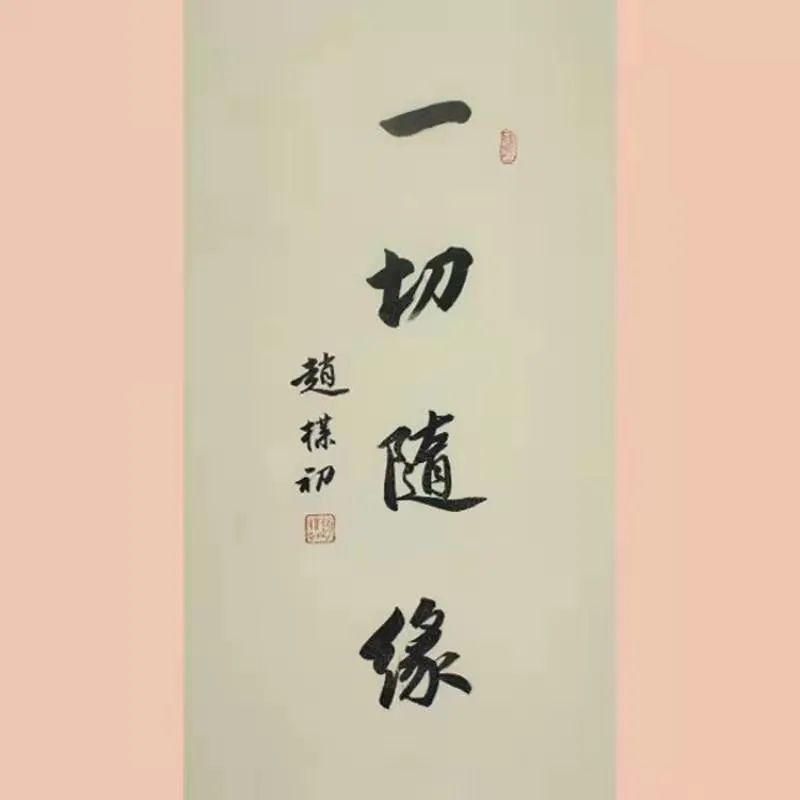 一切隨緣
趙樸初